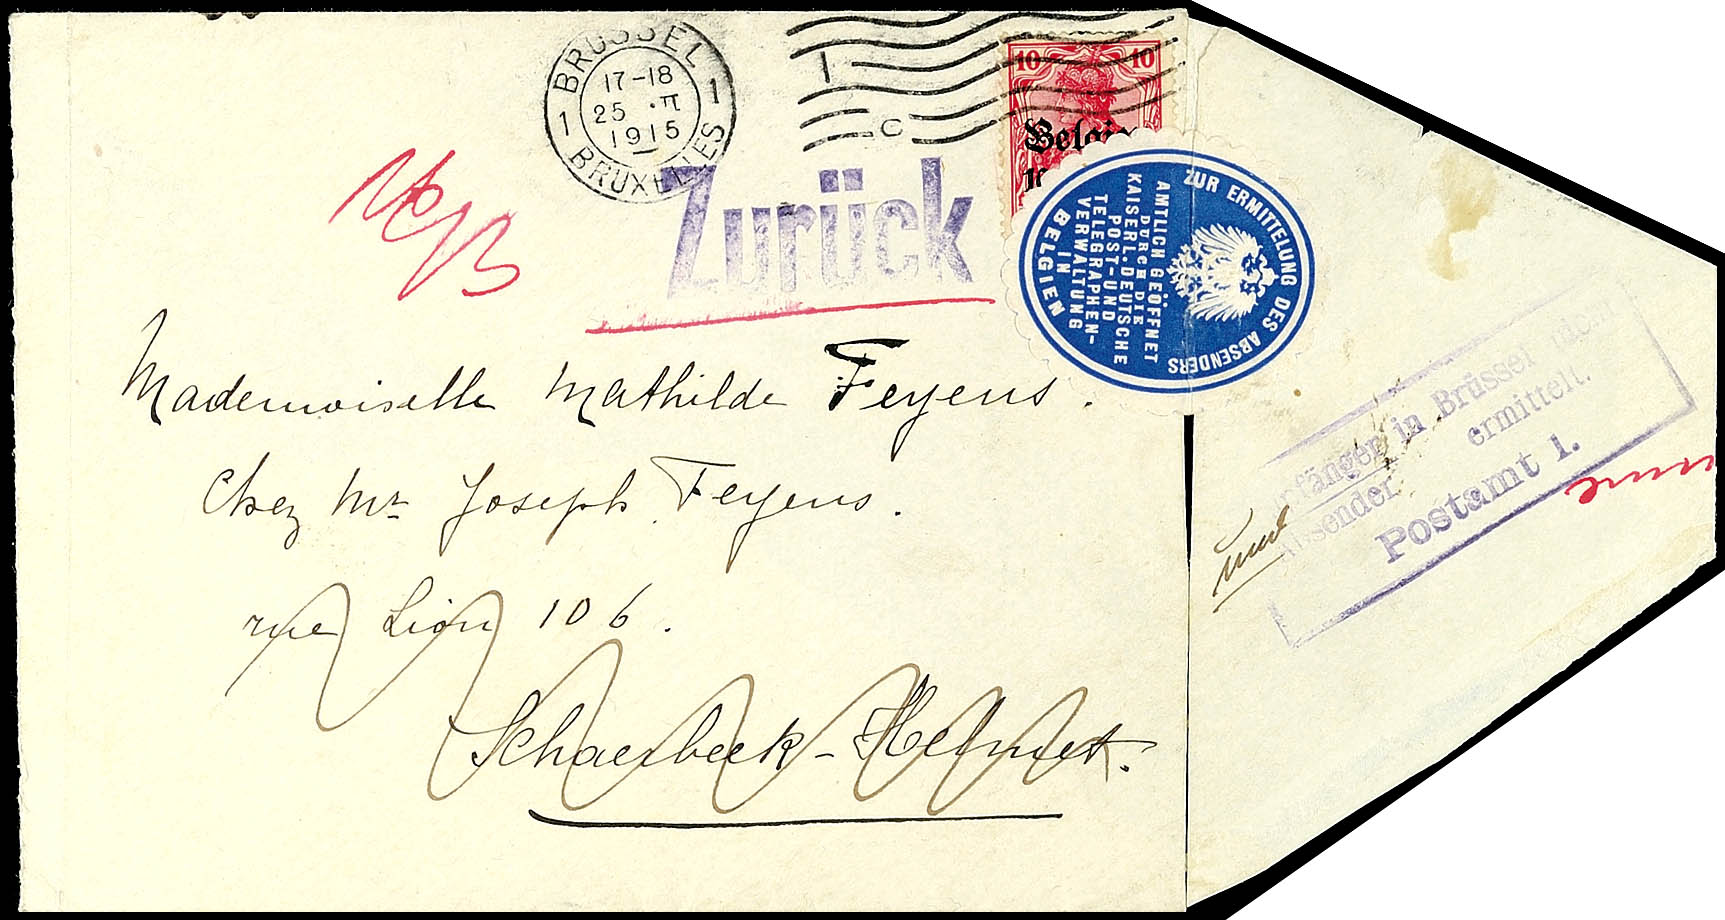 BRÜSSEL
17-18
25 . II
1 1
1915
BRUXELLES
C
10 10
Belgien
Zurück
ZUR ERMITTELUNG DES ABSENDERS
AMTLICH GEÖFFNET
DURCH DIE
KAISERL. DEUTSCHE
POST-UND
TELEGRAPHEN-
VERWALTUNG
IN
BELGIEN
Mademoiselle Mathilde Feyens.
Chez Mr Joseph Feyens.
rue Lion 106.
Schaerbeek-Helmet.
in Brüssel
ermittelt.
Absender
Postamt 1.